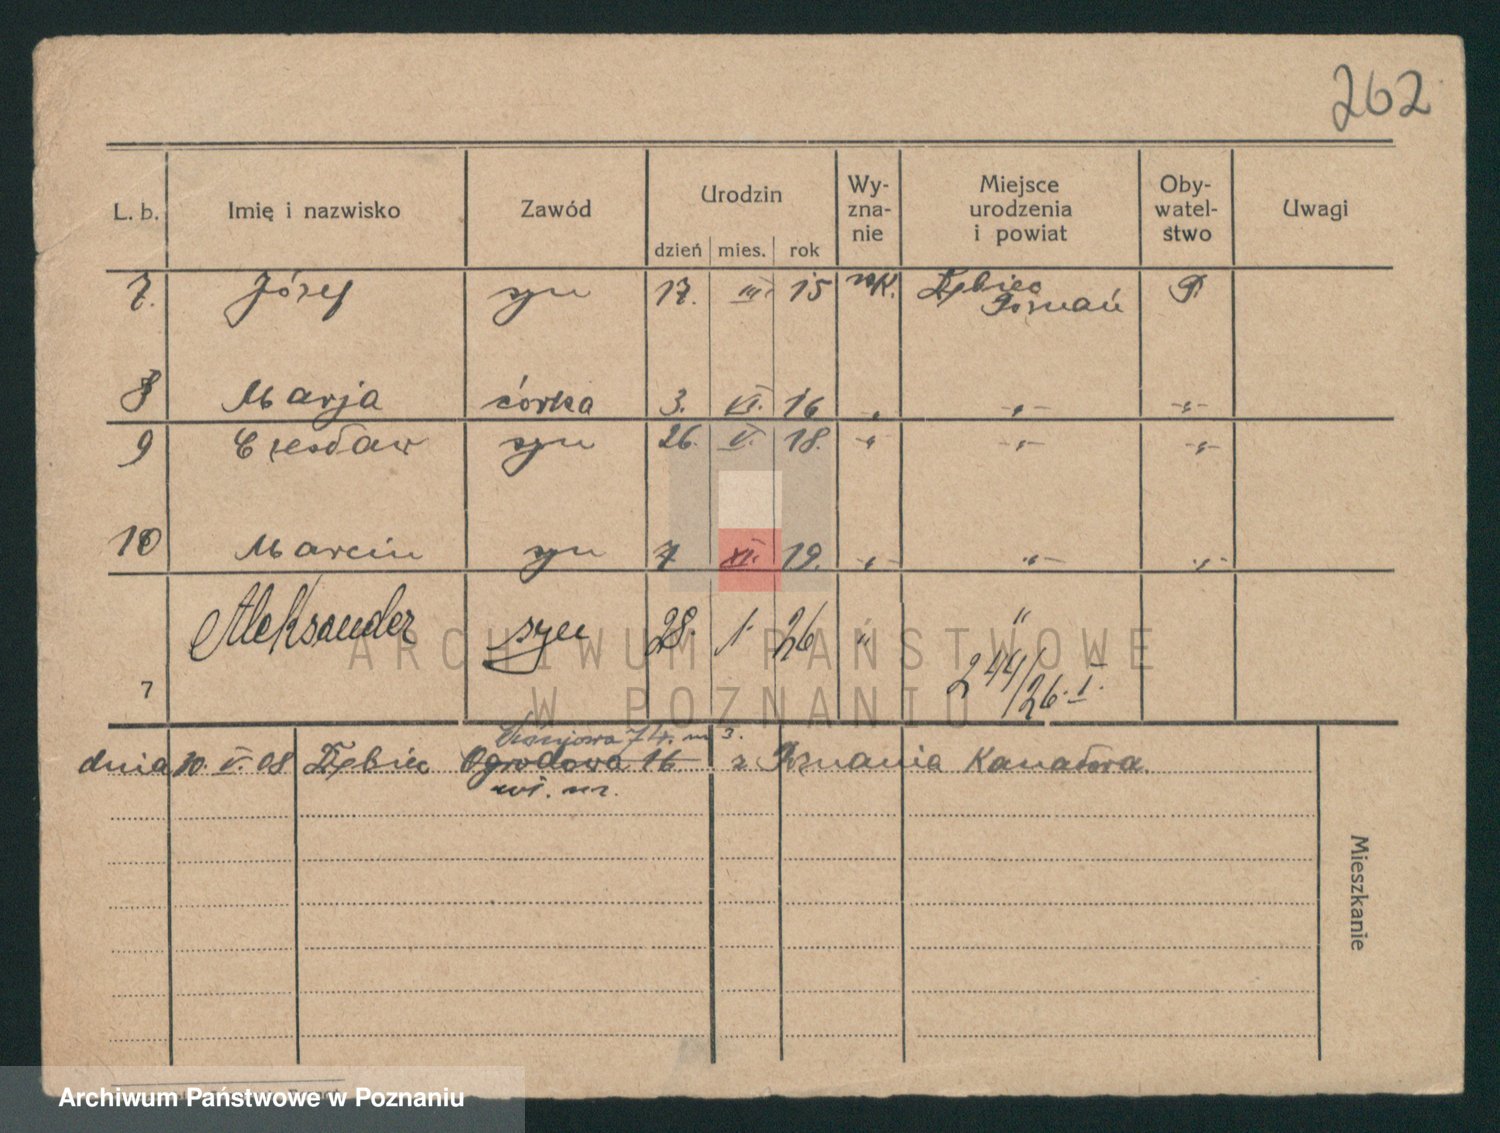 262
L. b. Imię i nazwisko Zawód Urodzin dzień mies. rok Wy-zna-nie Miejsce urodzenia i powiat Oby-watel-stwo Uwagi
7. Józef syn 17. III. 15 rzk. Dębiec Poznań P.
8 Marja córka 3. VI. 16 -„- -„- -„-
9 Czesław syn 26. V. 18. -„- -„- -„-
10 Marcin syn 7 XI. 19. -„- -„- -„-
Aleksander syn 28. 1. 26 „ „
7 244/26. I.
74. m 3.
dnia 10. V. 08 Dębiec Ogrodowa 16 z Poznania Kanałowa.
wł. nr.
Mieszkanie
ARCHIWUM PAŃSTWOWE
W POZNANIU
Archiwum Państwowe w Poznaniu